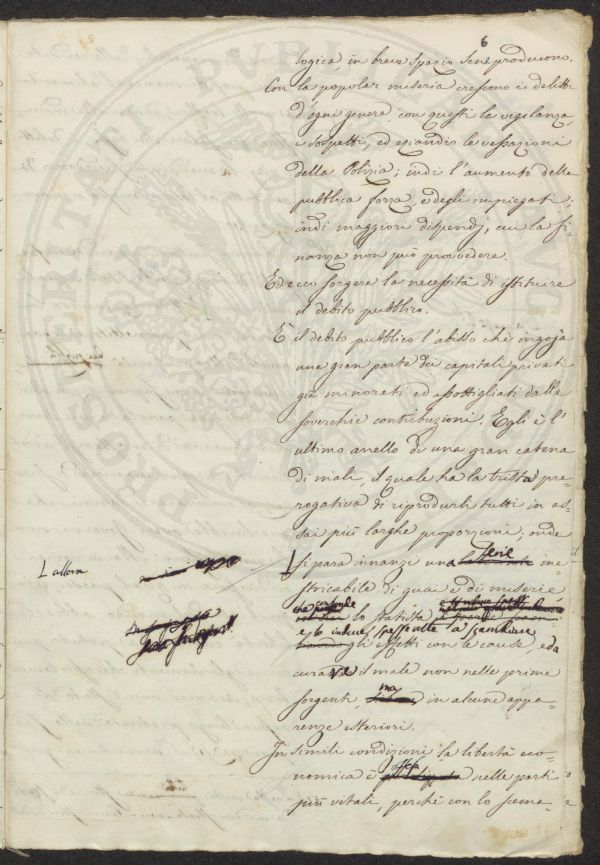 6
logica, in breve spazio se ne producono.
Con la popolar miseria crescono i delitti
d'ogni genere con questi la vigilanza,
i sospetti, ed eziandio le vessazioni
della Polizia; indi l'aumento della
pubblica forza, e degli impiegati;
indi maggiori dispendj, cui la fi-
nanza non può provvedere.
Ed ecco sorgere la necessità di istituire
il debito pubblico.
È il debito pubblico l'abisso che ingoja
una gran parte dei capitali privati
già minorati ed assottigliati dalle
soverchie contribuzioni. Egli è l'
ultimo anello di una gran catena
di mali, il quale ha la trista pre-
rogativa di riprodurli tutti in as-
sai più larghe proporzioni; onde
L allora
si para innanzi una serie ine-
stricabile di guai e di miserie
che lo statista
e lo induce spesse volte a scambiare
gli effetti con le cause, e da
curarve il male non nelle prime
sorgenti, ma in alcune appa-
renze esteriori.
In simili condizioni la libertà eco-
nomica è offesa nelle parti
più vitali, perchè con lo scema-